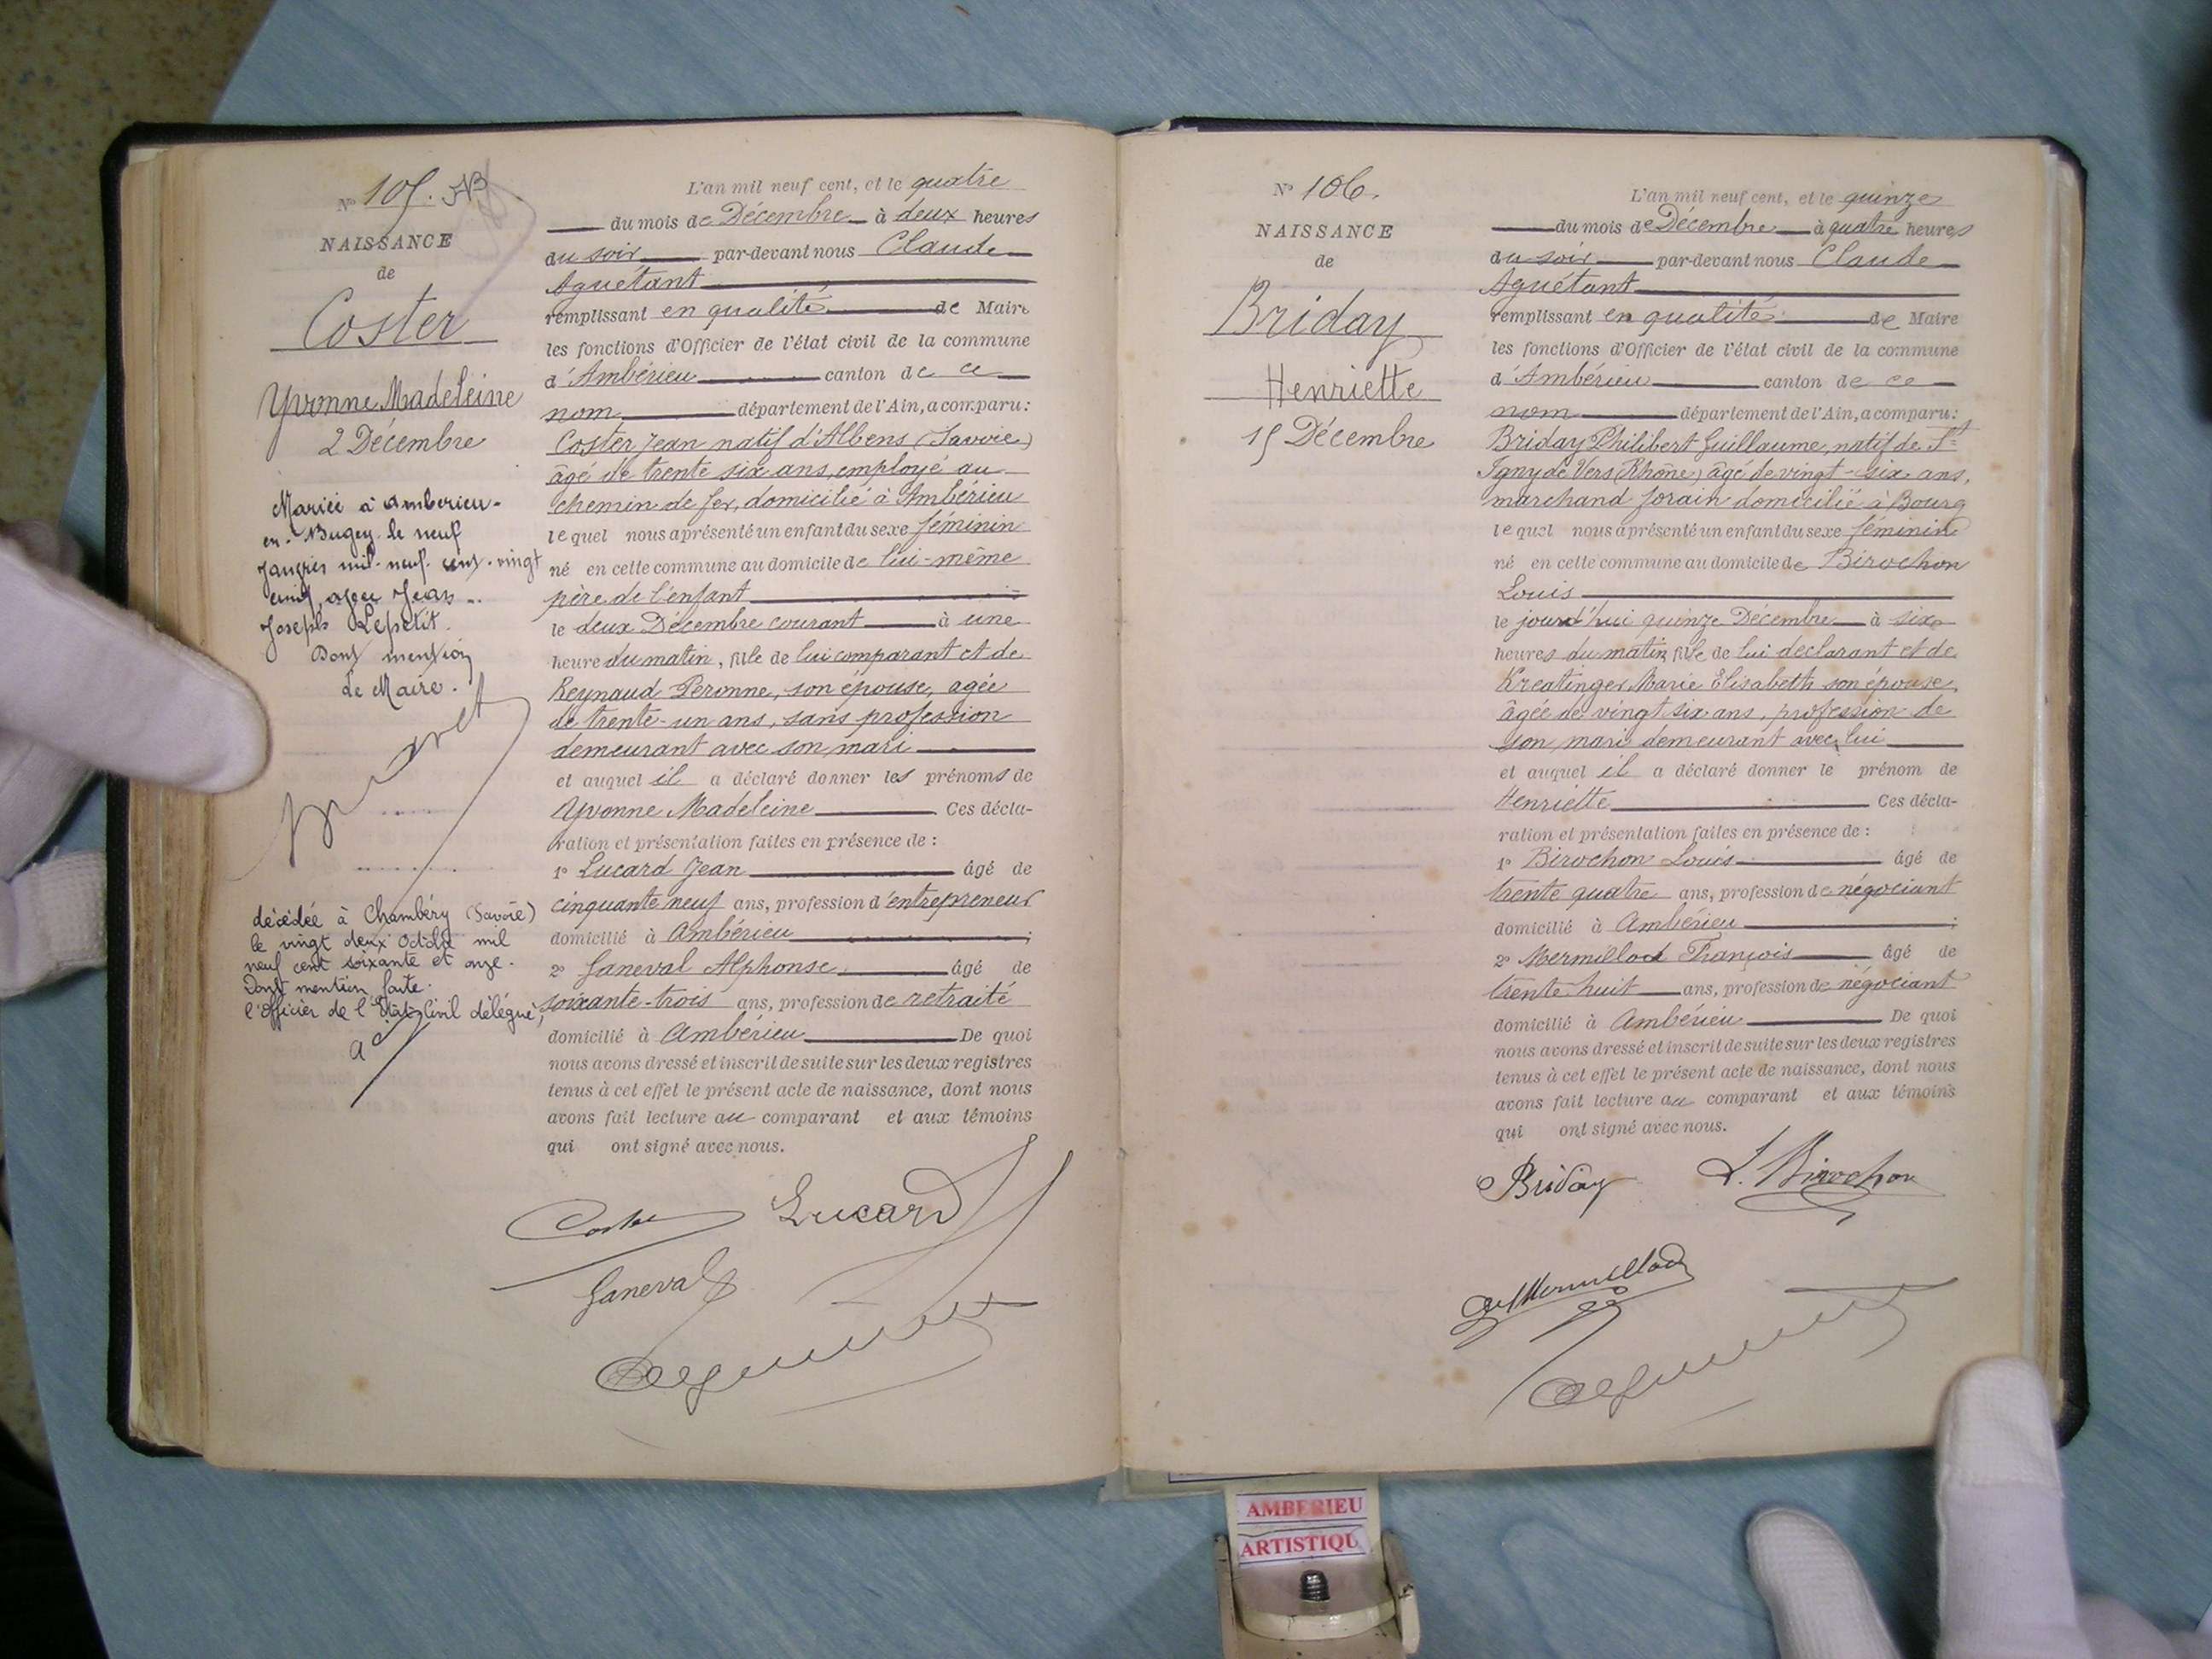 N° 105. NB
NAISSANCE
de
Coster
Yvonne Madeleine
2 Décembre
Mariée à Amberieu-
en-Bugey le neuf
janvier mil-neuf-cent-vingt
cinq avec Jean
Joseph Lepetit.
Dont mention
Le Maire.
décédée à Chambéry (Savoie)
le vingt deux Octobre mil
neuf cent soixante et onze.
Dont mention faite.
l'Officier de l'Etat Civil délégué,
L'an mil neuf cent, et le quatre
du mois de Décembre à deux heures
du soir par-devant nous Claude
Aguétant
remplissant en qualité de Maire
les fonctions d'Officier de l'état civil de la commune
d'Ambérieu canton de ce
nom département de l'Ain, a comparu:
Coster Jean natif d'Albens (Savoie)
âgé de trente six ans, employé au
chemin de fer, domicilié à Ambérieu
lequel nous a présenté un enfant du sexe féminin
né en cette commune au domicile de lui-même
père de l'enfant
le deux Décembre courant à une
heure du matin, fille de lui comparant et de
Reynaud Peronne, son épouse, agée
de trente-un ans, sans profession
demeurant avec son mari
et auquel il a déclaré donner les prénoms de
Yvonne Madeleine Ces décla-
ration et présentation faites en présence de :
1° Lucard Jean âgé de
cinquante neuf ans, profession d'entrepreneur
domicilié à Ambérieu ;
2° Ganeval Alphonse, âgé de
soixante-trois ans, profession de retraité
domicilié à Ambérieu De quoi
nous avons dressé et inscrit de suite sur les deux registres
tenus à cet effet le présent acte de naissance, dont nous
avons fait lecture au comparant et aux témoins
qui ont signé avec nous.
Coster Lucard
Ganeval
Aguétant
N° 106.
NAISSANCE
de
Briday
Henriette
15 Décembre
L'an mil neuf cent, et le quinze
du mois de Décembre à quatre heures
du soir par-devant nous Claude
Aguétant
remplissant en qualité de Maire
les fonctions d'Officier de l'état civil de la commune
d'Ambérieu canton de ce
nom département de l'Ain, a comparu:
Briday Philibert Guillaume, natif de St
Igny de Vers (Rhône) âgé de vingt-six ans,
marchand forain domicilié à Bourg
lequel nous a présenté un enfant du sexe féminin
né en cette commune au domicile de Birochon
Louis
le jourd'hui quinze Décembre à six
heures du matin, fille de lui déclarant et de
Kreatinger Marie Elisabeth son épouse,
âgée de vingt six ans, profession de
son mari demeurant avec lui
et auquel il a déclaré donner le prénom de
Henriette Ces décla-
ration et présentation faites en présence de :
1° Birochon Louis âgé de
trente quatre ans, profession de négociant
domicilié à Ambérieu ;
2° Mermillod François âgé de
trente huit ans, profession de négociant
domicilié à Ambérieu De quoi
nous avons dressé et inscrit de suite sur les deux registres
tenus à cet effet le présent acte de naissance, dont nous
avons fait lecture au comparant et aux témoins
qui ont signé avec nous.
Briday L. Birochon
Mermillod
Aguétant
AMBERIEU
ARTISTIQU